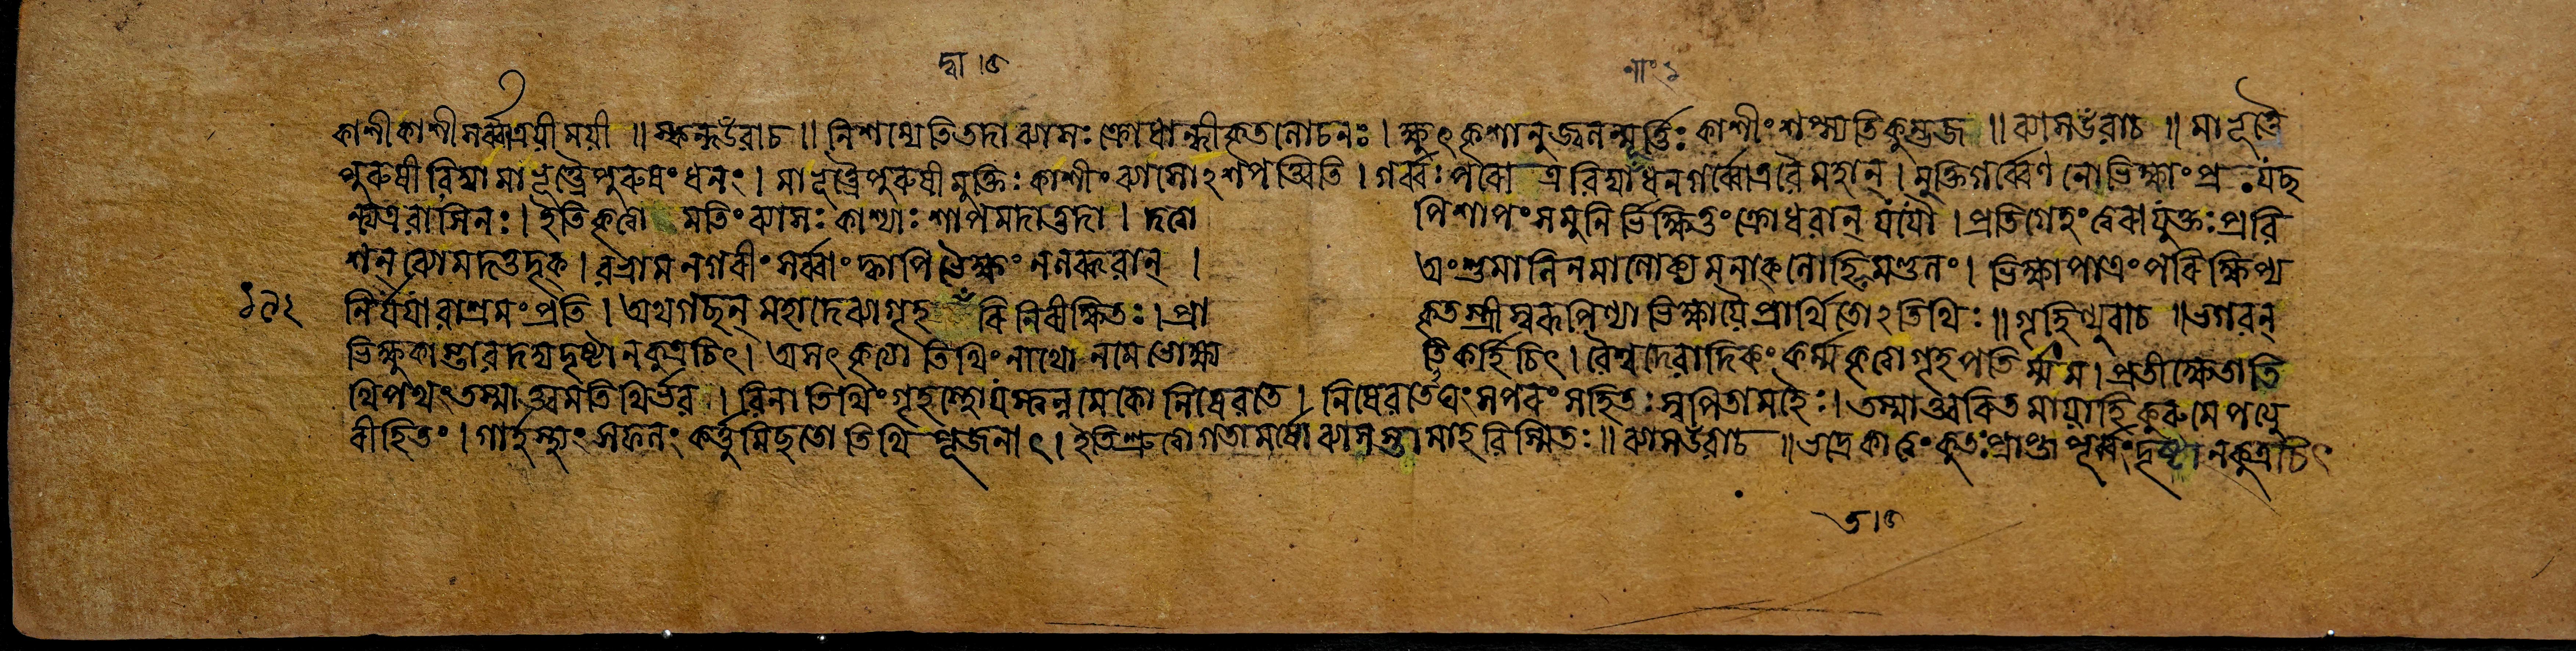 দ্বা ।ও
কাশীকাশীসর্ব্বাত্রয়ীময়ী ॥ স্কন্দউবাচ ॥ নিশম্যেতিতদাব্যাসঃ ক্রোধান্ধীকৃতলোচনঃ । ক্ষুৎকৃশানুজ্বলন্মূর্ত্তিঃ কাশীং শপ্স্যতিকুম্ভজ ॥ ব্যাসউবাচ ॥ মাভূত্ত্রৈ
পুরুষীবিদ্যামাভূত্ত্রৈপুরুষং ধনং । মাভূত্ত্রৈপুরুষীমুক্তিঃ কাশীং ব্যাসোঽশপত্বিতি । গর্ব্বঃ পরো ত্র বিদ্যাধনগর্ব্বোত্রবৈমহান্ । মুক্তিগর্ব্বেণ নোভিক্ষাং প্র যচ্ছ
ন্ত্যত্রবাসিনঃ । ইতিকৃত্বা মতিং ব্যাসঃ কাশ্যাং শাপমদাত্তদা । দত্ত্বা পিশাপং সমুনি র্ভিক্ষিতুং ক্রোধবান্ যযৌ । প্রতিগেহং ত্বরাযুক্তঃ প্রবি
শন্ ব্যোমদত্তদৃক্ । বভ্রামনগরীং সর্ব্বাং ক্বাপি ভৈক্ষং নলব্ধবান্ । অংশুমালিনমালোক্য মনাক্ লোহিতমণ্ডলং । ভিক্ষাপাত্রং পরিক্ষিপ্য
নির্যযাবাশ্রমং প্রতি । অথগচ্ছন্ মহাদেব্যাগৃহ দ্বারি নিরীক্ষিতঃ । প্রা কৃতস্ত্রীস্বরূপিণ্যা ভিক্ষায়ৈ প্রার্থিতোঽতিথিঃ ॥ গৃহিণ্যুবাচ ॥ ভগবন্
ভিক্ষুকাস্তাবদদ্যদৃষ্টানকুত্রচিৎ । অসৎকৃত্যা তিথিং নাথো নমেভোক্ষ্য তি কর্হিচিৎ । বৈশ্বদেবাদিকং কর্ম্ম কৃত্বাগৃহপতি র্ম্মম । প্রতীক্ষেতাতি
থিপথং তস্মাত্ত্বমতিথির্ভব । বিনাতিথিং গৃহস্থোযস্ত্বন্নমেকো নিষেবতে । নিষেবতেঘং সপরং সহিতঃ স্বপিতামহৈঃ । তস্মাত্ত্বরিতমায়াহিকুরুমেপত্যু
রীহিতং । গার্হস্থ্যং সফলং কর্ত্তুমিচ্ছতো তিথি পূজনাৎ । ইতিশ্রুত্বা গতামর্ষো ব্যাসস্তামাহবিস্মিতঃ ॥ ব্যাসউবাচ ॥ ভদ্রে কাত্বং কুতঃ প্রাপ্তা পূর্ব্বং দৃষ্টানকুত্রচিৎ